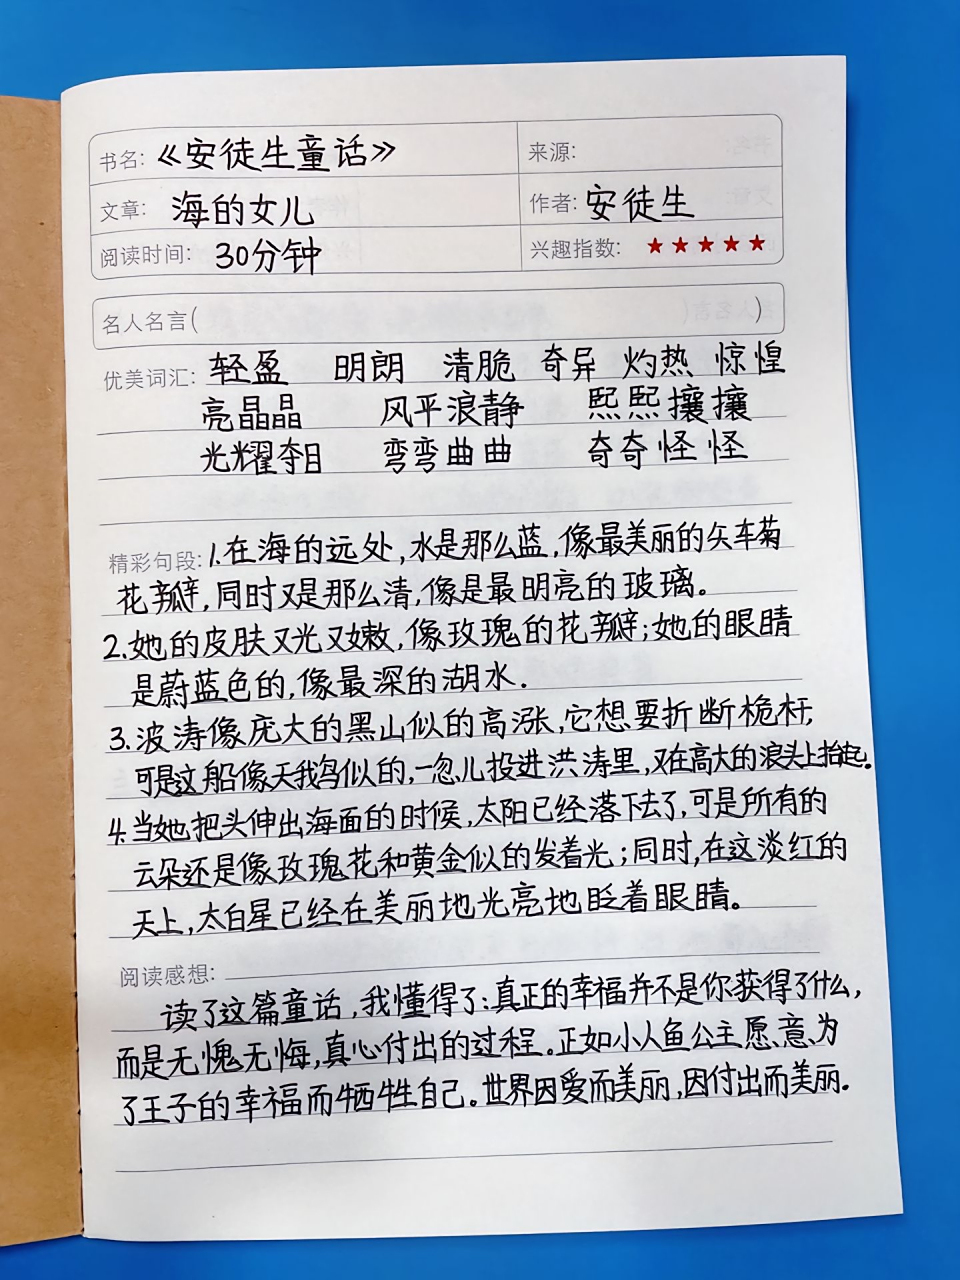 书名: 《安徒生童话》 来源:
文章: 海的女儿 作者: 安徒生
阅读时间: 30分钟 兴趣指数: ★★★★★
名人名言( )
优美词汇: 轻盈 明朗 清脆 奇异 灼热 惊惶
亮晶晶 风平浪静 熙熙攘攘
光耀夺目 弯弯曲曲 奇奇怪怪
精彩句段: 1.在海的远处,水是那么蓝,像最美丽的矢车菊
花瓣,同时又是那么清,像是最明亮的玻璃。
2.她的皮肤又光又嫩,像玫瑰的花瓣;她的眼睛
是蔚蓝色的,像最深的湖水.
3.波涛像庞大的黑山似的高涨,它想要折断桅杆,
可是这船像天鹅似的,一忽儿投进洪涛里,又在高大的浪头上抬起。
4.当她把头伸出海面的时候,太阳已经落下去了,可是所有的
云朵还是像玫瑰花和黄金似的发着光;同时,在这淡红的
天上,太白星已经在美丽地光亮地眨着眼睛。
阅读感想:
读了这篇童话,我懂得了:真正的幸福并不是你获得了什么,
而是无愧无悔,真心付出的过程。正如小人鱼公主愿、意、为
了王子的幸福而牺牲自己。世界因爱而美丽,因付出而美丽.